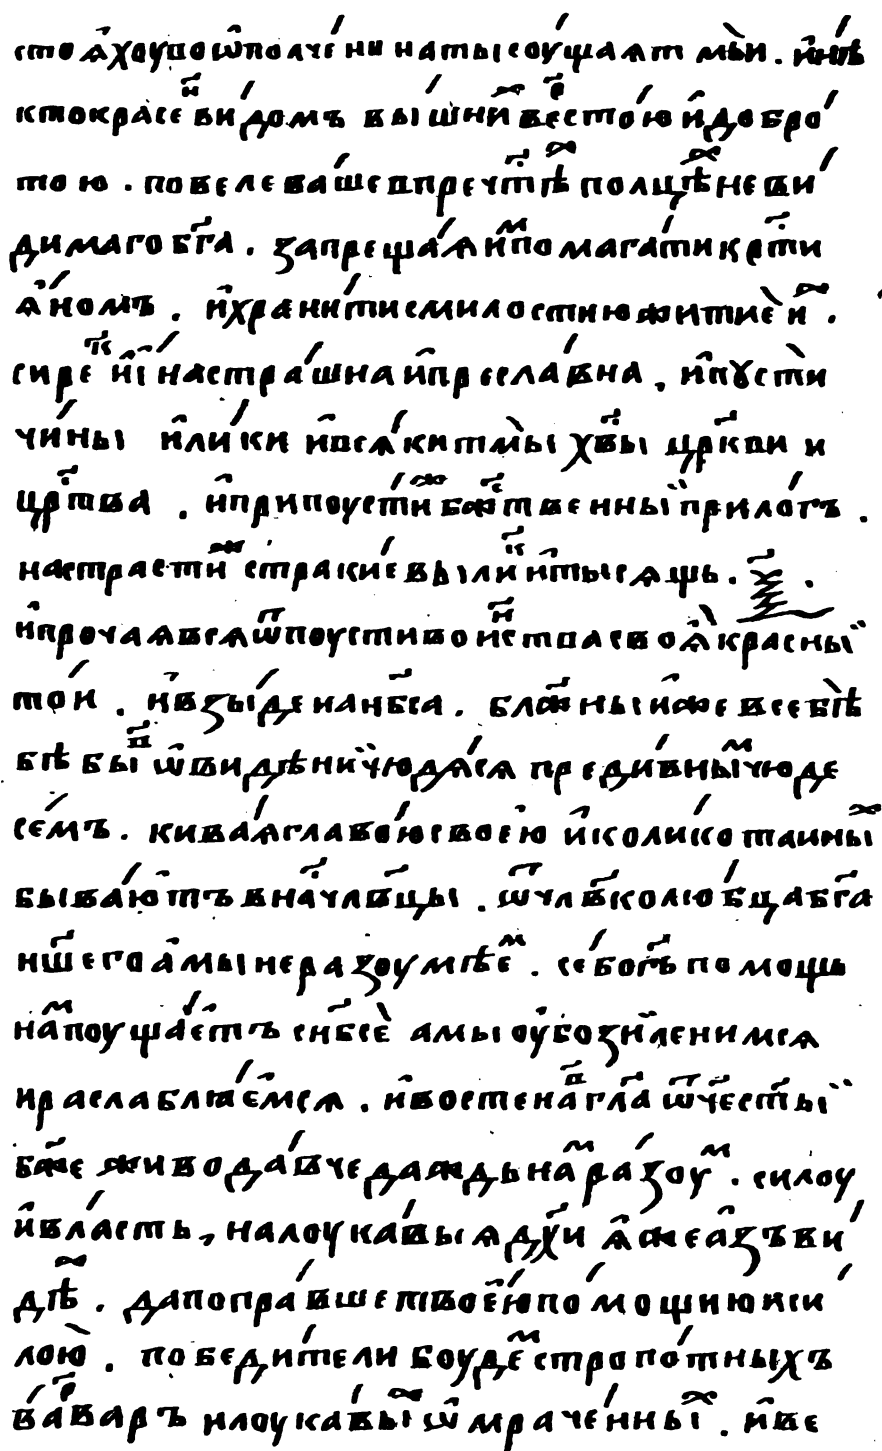 стоѧ҆́хоуꙋо ѡ҆полче́ни на тысоу́щаѧ тмы̀и . и҆нн҃ѣ
кто красе́нъ ви́домъ вы́шни́ⷯ все́ⷬ стою́ и҆ до бро́
тою . повелева́ше впречⷭ҇тѣ́ⷯ полцѣ́ⷯ неви́
димаго бг҃а . запреща́ѧ и҆ⷨ помага́ти крⷭ҇ти
ѧ҆́номъ . и҆ храни́ти смилостию житиѐ и҆ⷯ .
сирѣ́ⷱ и҆ на стра́шна и҆ пресла́вна . и҆ пꙋсты̀и
чи́ны и҆ ли́ки и҆ всѧ́ки тмы̀ хв҃ы црк҃ви и
црⷭ҇тва . и҆ припоусти́ⷤ бжⷭ҇твенныи прило́гъ .
на страсти́ⷤ страки́евы ли́ⷦ и҆ тысѧщь . х҃ .
и҆ прочаѧ всѧ ѿпоусти вои́ⷩства своѧ҆̀ красныи
то́и . и҆ взы́де на нб҃са . блж҃ны и҆же в себѣ̀
бѣ бы́ⷡ ѡ҆ виденїи чюдѧ́сѧ преди́вны́ⷨ чюде
се́мъ . кива́ѧ главо́ю своею҆ и҆ коли́ко таины́ⷯ
быва́ю҆тъ в на́ч҃лв҃цы . ѿ ч҃лв҃колю́бца бг҃а
нш҃его а҆ мы не разоумѣ́еⷨ . се́ бо гь҃ помощь
на́ⷨ поуща́е҆тъ с нб҃сѐ а мы оу҆бозїи ленимсѧ
и раслаблѧ́е҆мсѧ . и҆ во стена́ⷡ гл҃а ѿчⷭ҇естыи
бж҃е живода́вче даждь на́ⷨ ра́зоуⷨ . силоу
и҆ вла́сть , на лоука́выѧ дх҃и ѧ҆же а҆зъ ви́
дѣ́ⷯ . да попра́вше твое҆́ю по́мощию и си́
лою̀ . победи́тели боуде́ⷨ стропо́тныхъ
ва́ⷬваръ и лоука́вы́ⷯ ѡ҆мраче́нныⷯ . и҆ ве